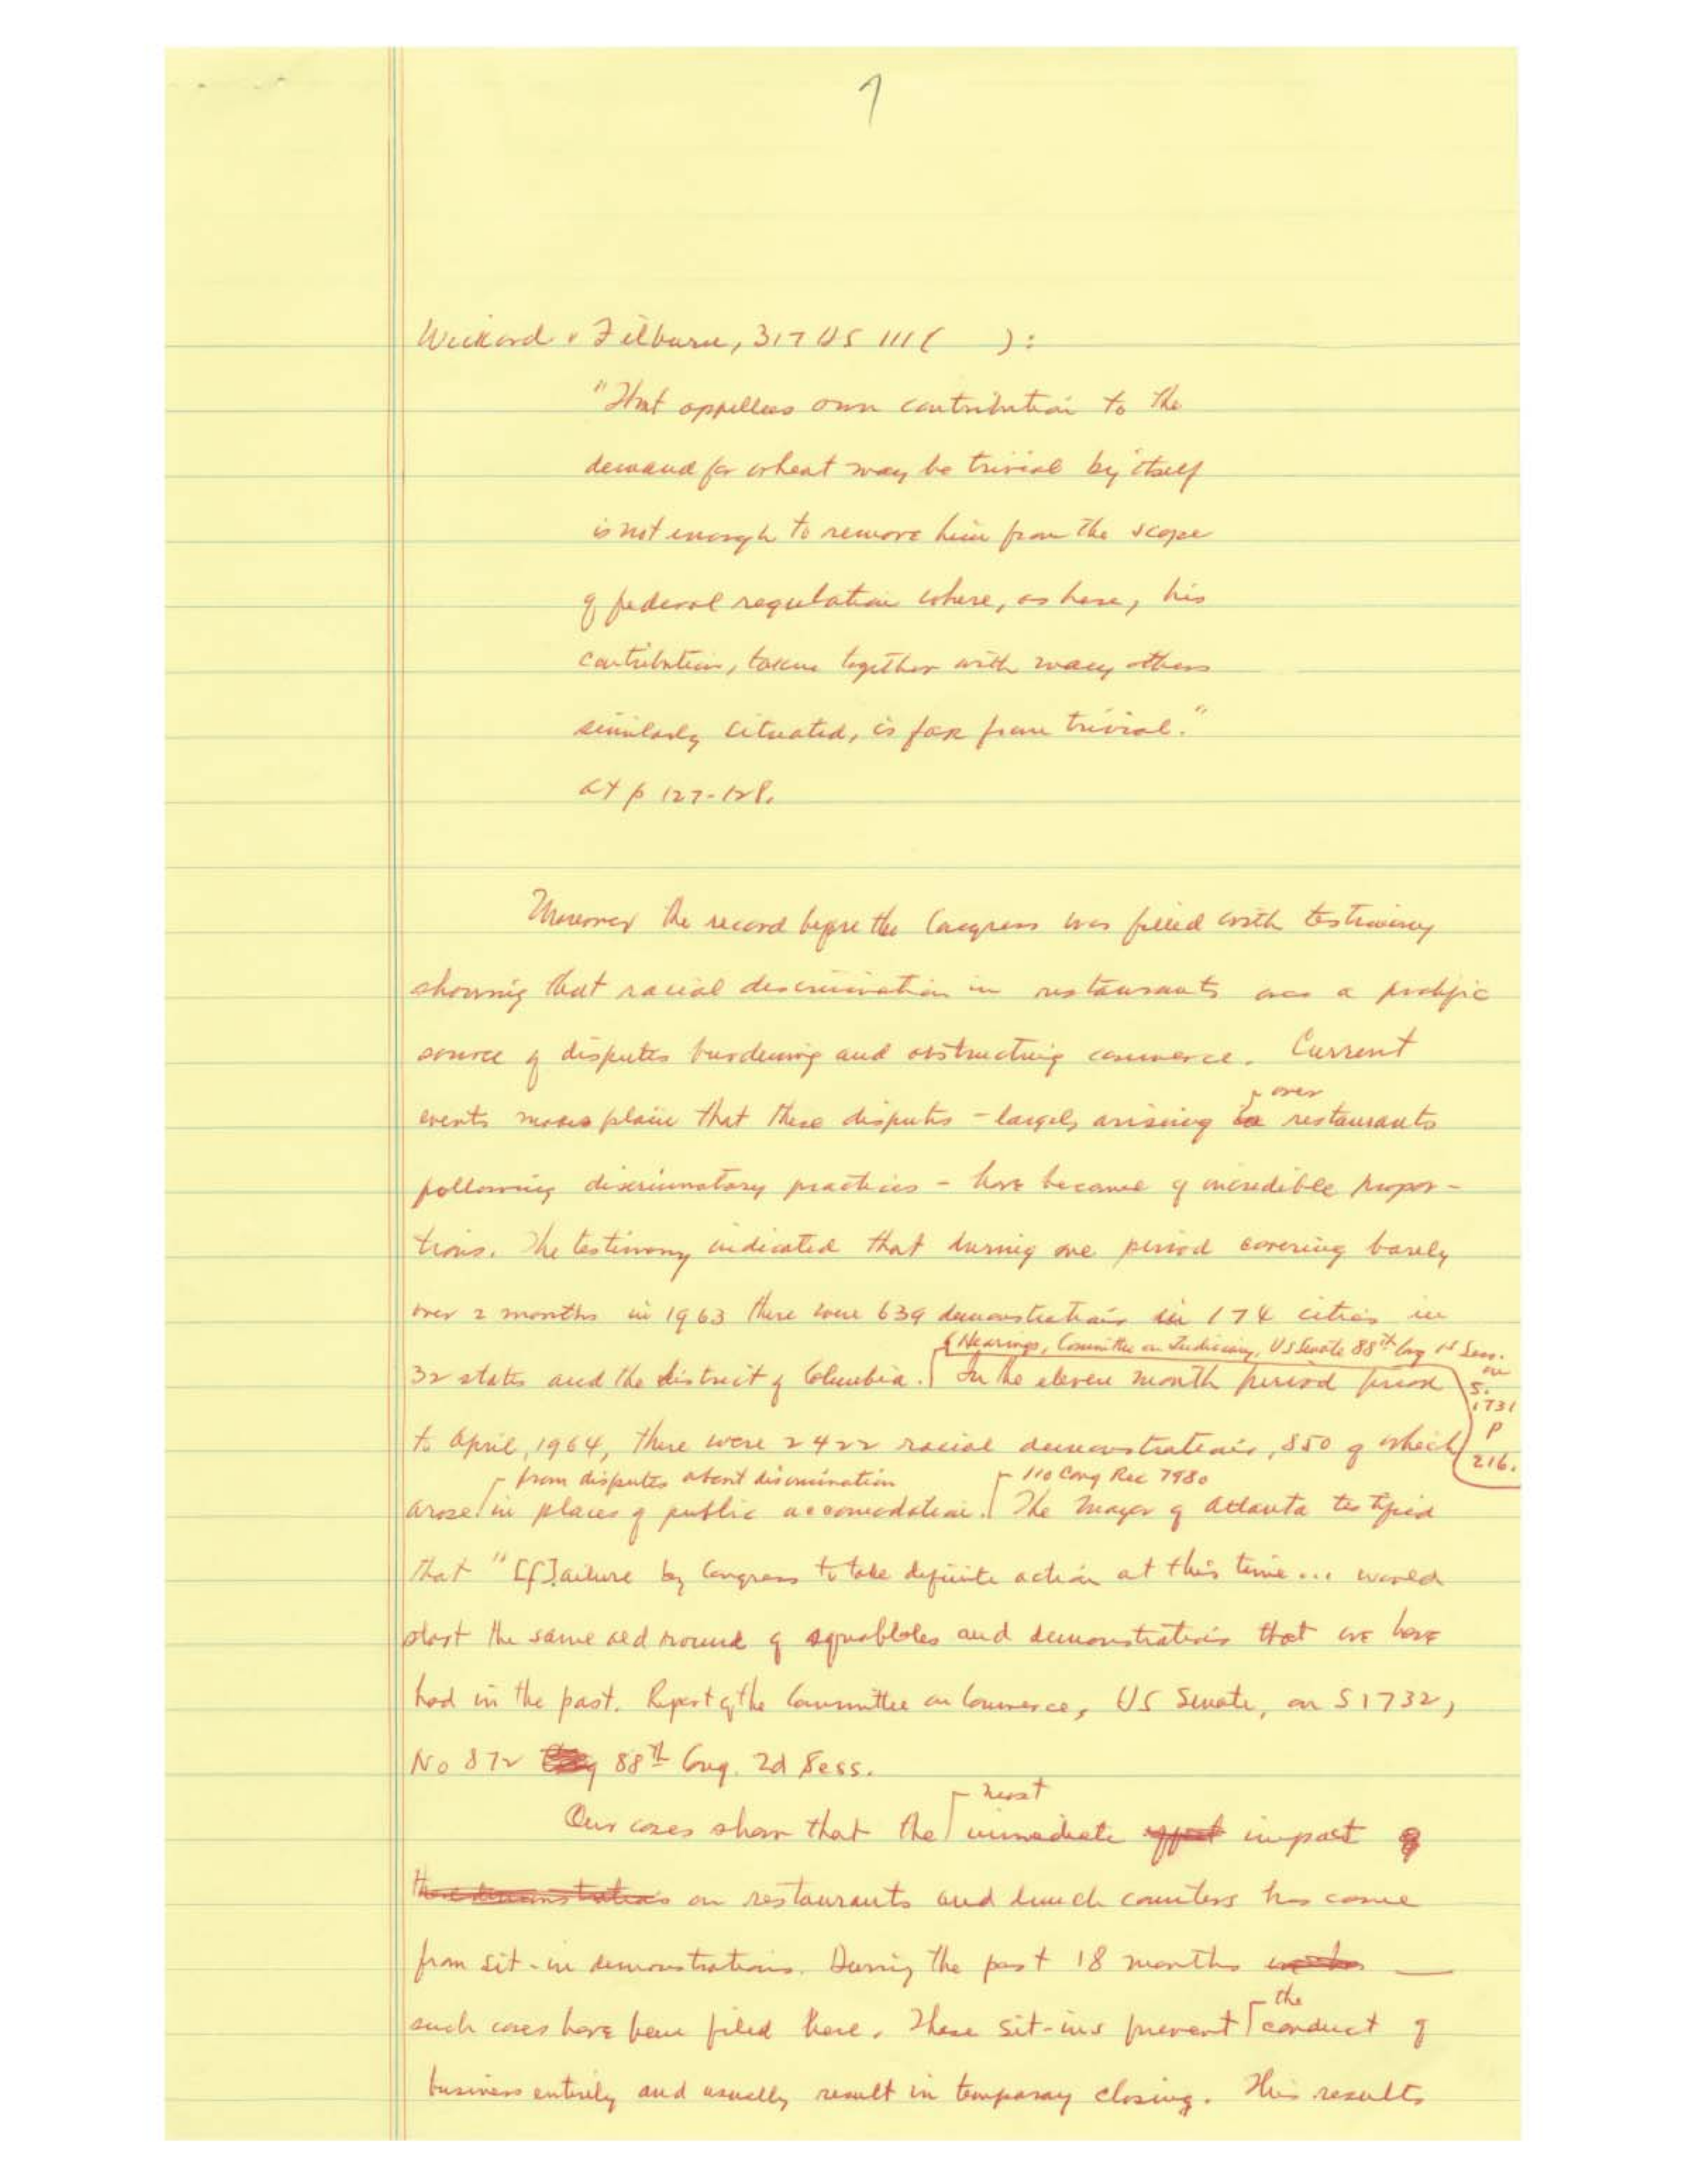 7
Wickard v Filburn, 317 US 111 ( ):
"That appellees own contribution to the
demand for wheat may be trivial by itself
is not enough to remove him from the scope
of federal regulation where, as here, his
contribution, taken together with many others
similarly situated, is far from trivial."
at p 127-128.
Moreover the record before the Congress was filled with testimony
showing that racial discrimination in restaurants was a prolific
source of disputes burdening and obstructing commerce. Current
over
events makes plain that these disputes - largely arising in restaurants
following discriminatory practices - have become of incredible propor-
tions. The testimony indicated that during one period covering barely
over 2 months in 1963 there were 639 demonstrations in 174 cities in
Hearings, Committee on Judiciary, US Senate 88th Cong 1st Sess. on
S. 1731
p
216.
32 states and the district of Columbia. In the eleven month period prior
to April, 1964, there were 2422 racial demonstrations, 850 of which
from disputes about discrimination
110 Cong Rec 7980
arose in places of public accomodation. The Mayor of Atlanta testified
that "[f]ailure by Congress to take definite action at this time ... would
start the same old round of squabbles and demonstrations that we have
had in the past. Report of the Committee on Commerce, US Senate, on S 1732,
No 872 88th Cong. 2d Sess.
most
Our cases show that the immediate effect impact of
these demonstrations on restaurants and lunch counters has come
from sit-in demonstrations. During the past 18 months
the
such cases have been filed here. These sit-ins prevent conduct of
business entirely and usually result in temporary closing. This results